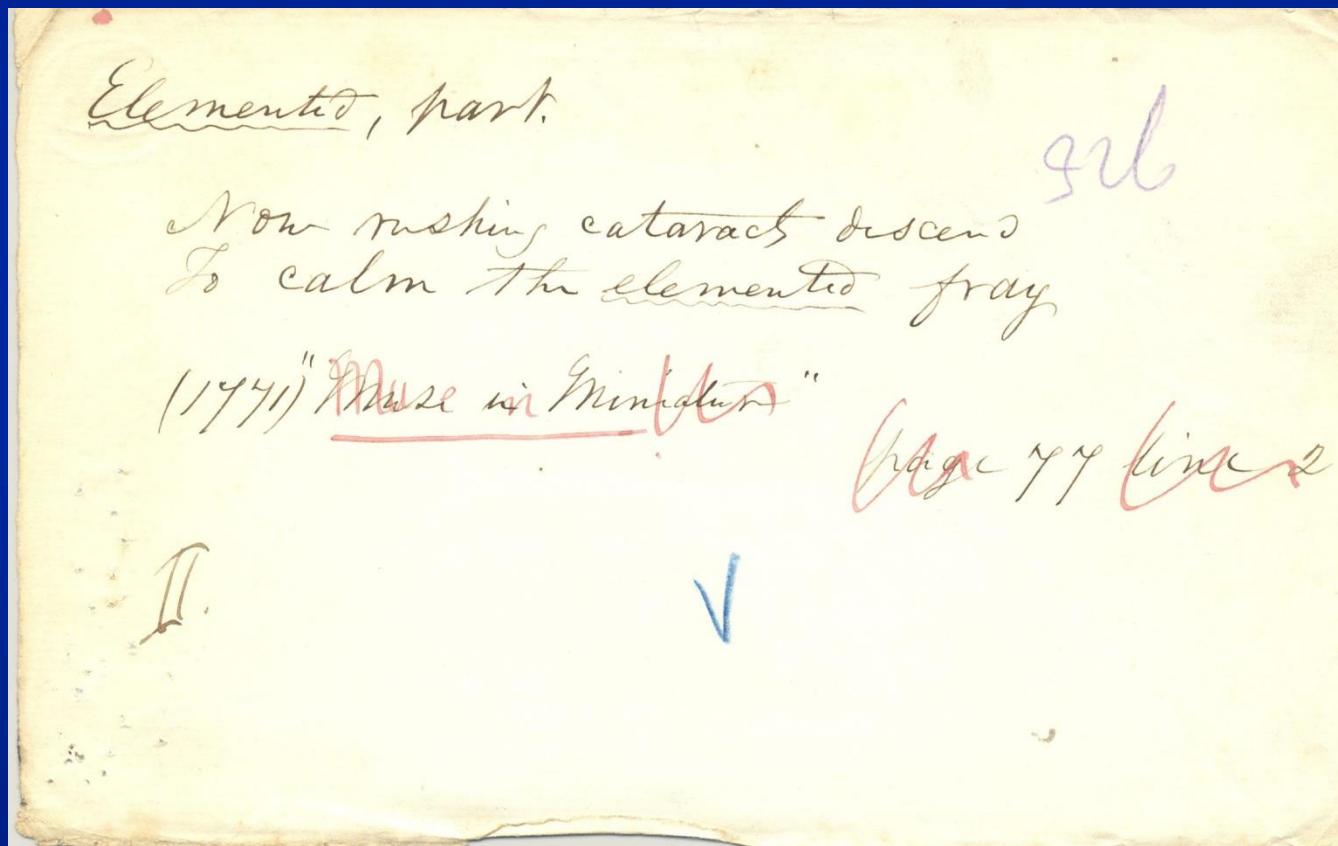 Elemented, part.
926
Now rushing cataracts descend
To calm the elemented fray
(1771) "Muse in Miniature"
page 77 line 2
II.